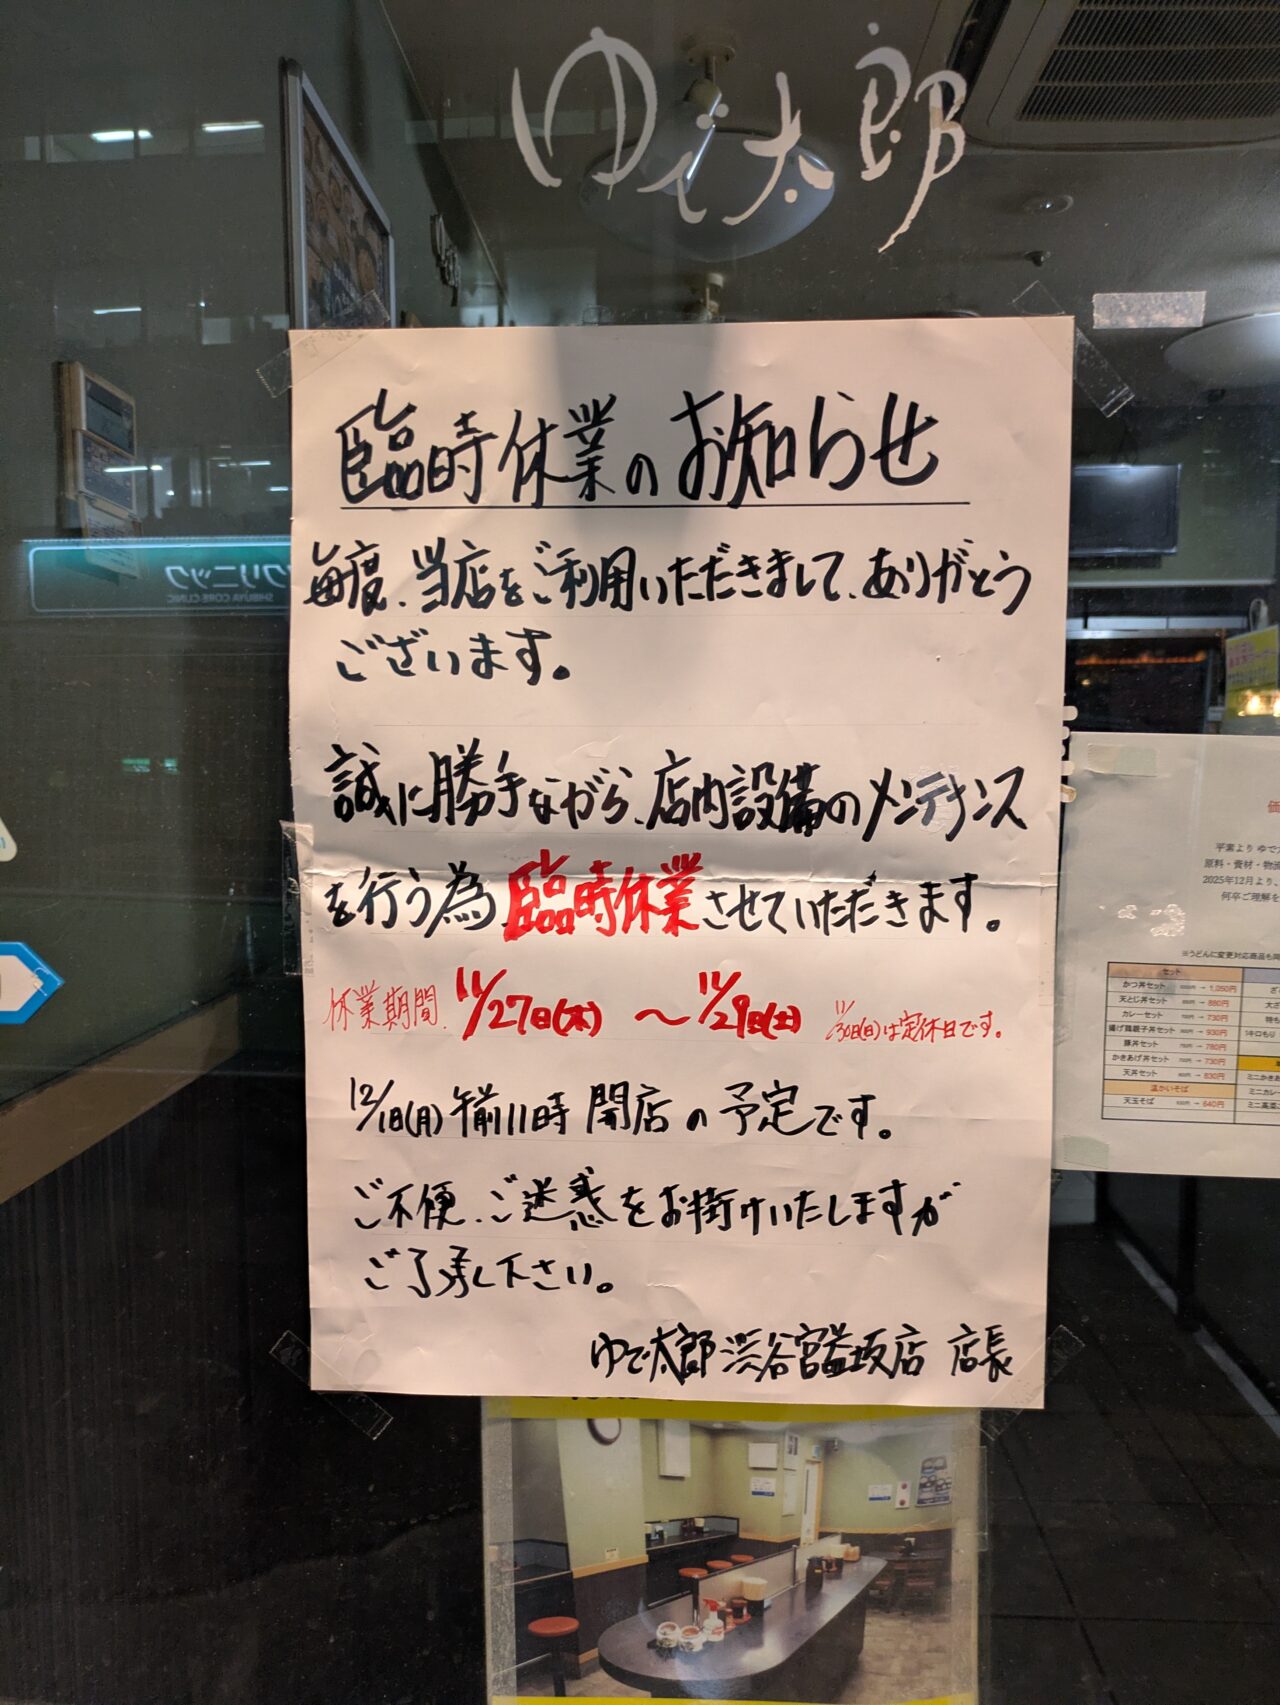 ゆで太郎
臨時休業のお知らせ
毎度、当店をご利用いただきまして、ありがとう
ございます。
誠に勝手ながら、店内設備のメンテナンス
を行う為、臨時休業させていただきます。
休業期間、11/27日(木) 〜 11/29日(土) 11/30日(日)は定休日です。
12/1日(月)午前11時 開店の予定です。
ご不便、ご迷惑をお掛けいたしますが
ご了承し下さい。
ゆで太郎 渋谷宮益坂店 店長
クリニック
SHIBUYA CORE CLINIC
価
平素より ゆで太
原料・資材・物流
2025年12月より、
何卒ご理解を
※うどんに変更対応商品も同
セット
かつ丼セット → 1,050円
天とじ丼セット → 880円
カレーセット → 730円
揚げ鶏親子丼セット → 930円
豚丼セット → 780円
かきあげ丼セット → 730円
天丼セット → 830円
温かいそば
天玉そば → 640円
ざ
大
特も
1キロもり
ミニかきあ
ミニカレー
ミニ高菜